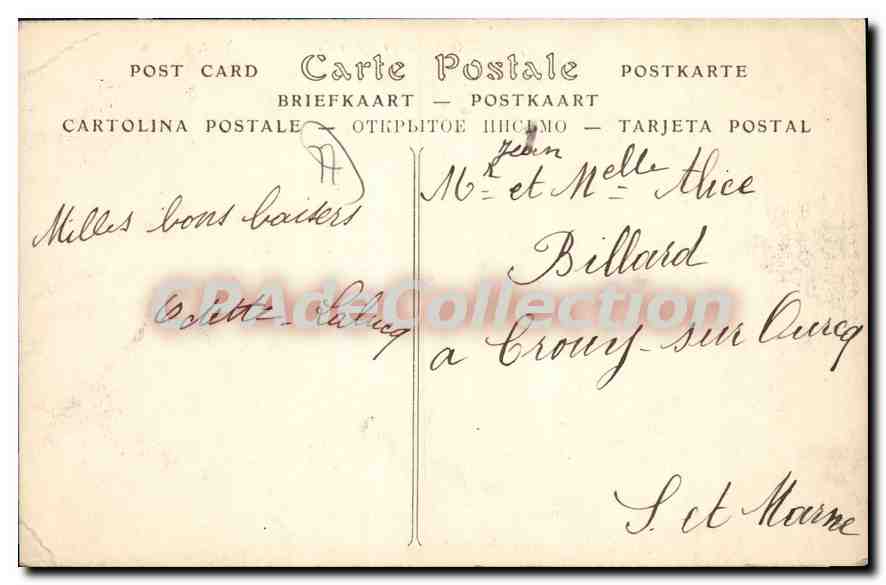 POST CARD Carte Postale POSTKARTE
BRIEFKAART — POSTKAART
CARTOLINA POSTALE — ОТКРЫТОЕ ПИСЬМО — TARJETA POSTAL
Milles bons baisers
Odette
Jean
Mr et Melle Alice
Billard
a Crouy-sur Ourcq
S. et Marne
CPAdeCollection